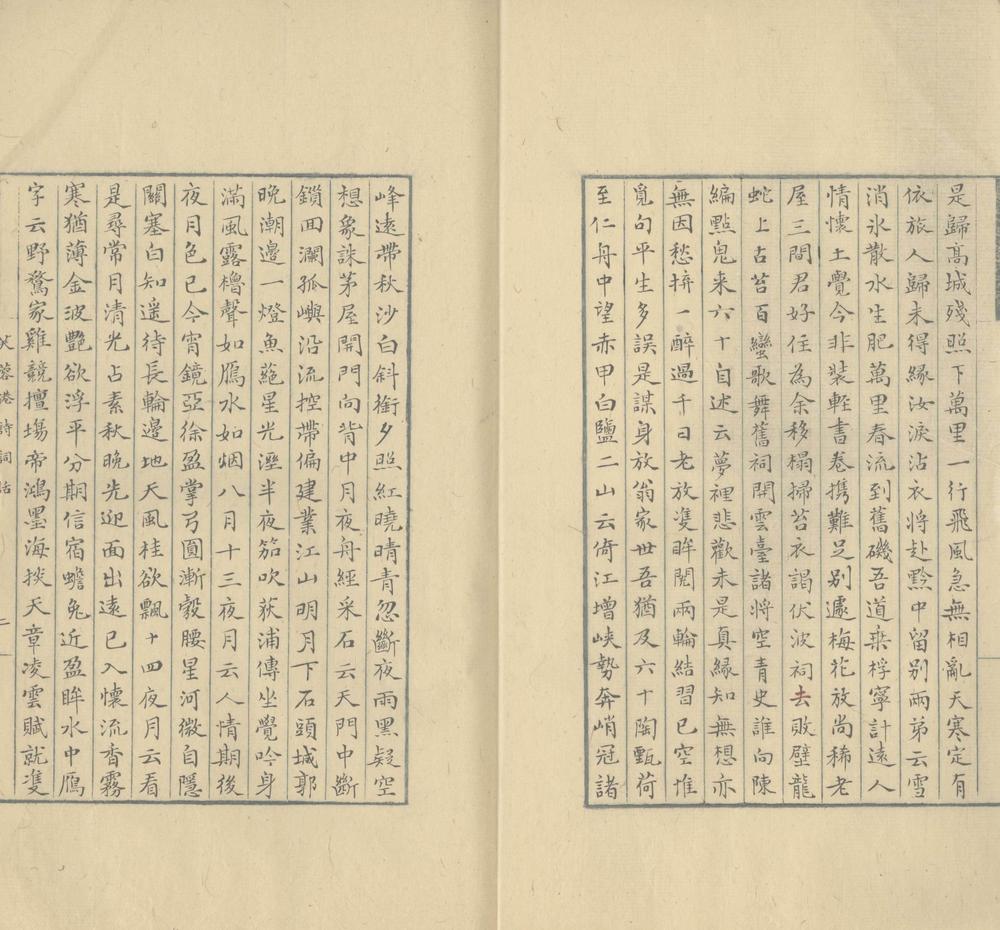 是歸高城殘照下萬里一行飛風急無相亂天寒定有
依旅人歸未得緣汝淚沾衣將赴黔中留別兩弟云雪
消氷散水生肥萬里春流到舊磯吾道乘桴寧計遠人
情懷土覺今非裝輕書卷携難足別遽梅花放尚稀老
屋三間君好住為余移榻掃苔衣謁伏波祠去敗壁龍
蛇上古苔百蠻歌舞舊祠開雲臺諸將空青史誰向陳
編點鬼来六十自述云夢裡悲歡未是真緣知無想亦
無因愁擠一醉過千日老放隻眸閱兩輪結習已空惟
覓句平生多誤是謀身放翁家世吾猶及六十陶甄荷
至仁舟中望赤甲白鹽二山云倚江增峽勢奔峭冠諸
峰遠帶秋沙白斜銜夕照紅曉晴青忽斷夜雨黑疑空
想象誅茅屋開門向背中月夜舟經采石云天門中斷
鎖回瀾孤嶼沿流控帶偏建業江山明月下石頭城郭
晚潮邊一燈魚菢星光溼半夜笳吹荻浦傳坐覺吟身
滿風露櫓聲如鴈水如烟八月十三夜月云人情期後
夜月色已今宵鏡亞徐盈掌弓圓漸彀腰星河微自隱
關塞白知遥待長輪邊地天風桂欲飄十四夜月云看
是尋常月清光占素秋晚先迎面出遠已入懷流香霧
寒猶薄金波艷欲浮平分期信宿蟾兔近盈眸水中鴈
字云野鶩家雞競擅場帝鴻墨海掞天章凌雲賦就隻
蓉港詩詞話
二